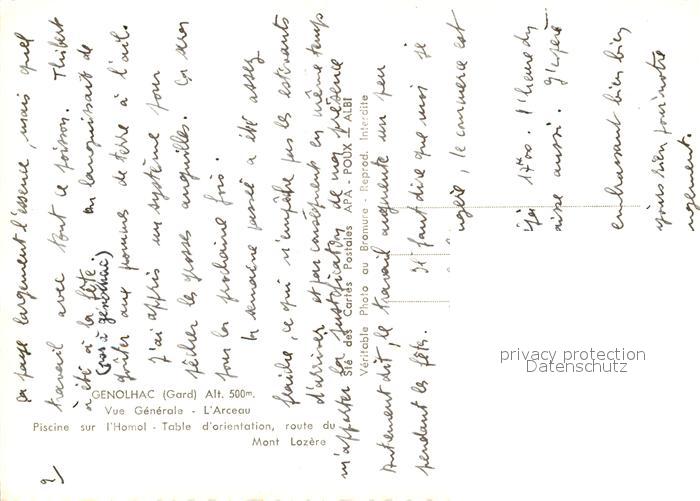 ça paye largement l'essence, mais quel
travail avec tout ce poisson. Thibert
a été à la fête en languissant de
(pas à génolhac)
goûter aux pommes de terre à l'ail.
J'ai appris un système pour
pêcher les grosses anguilles.
pour la prochaine fois.
la semaine passé a été assez
fraîche, ce qui n'empêche pas les estivants
d'arriver et par conséquent en même temps
m'apporter la justification de ma présence
Autrement dit, le travail augmente un peu
pendant les fêtes. Il faut dire que moi je
le commerce est
17h00. l'heure du
aussi. J'espère
embrassant bien bien
bien pour notre
2/
GENOLHAC (Gard) Alt. 500m.
Vue Générale - L'Arceau
Piscine sur l'Homol - Table d'orientation, route du
Mont Lozère
Sté des Cartes Postales APA - POUX - ALBI
Véritable Photo au Bromure - Reprod. Interdite
privacy protection
Datenschutz